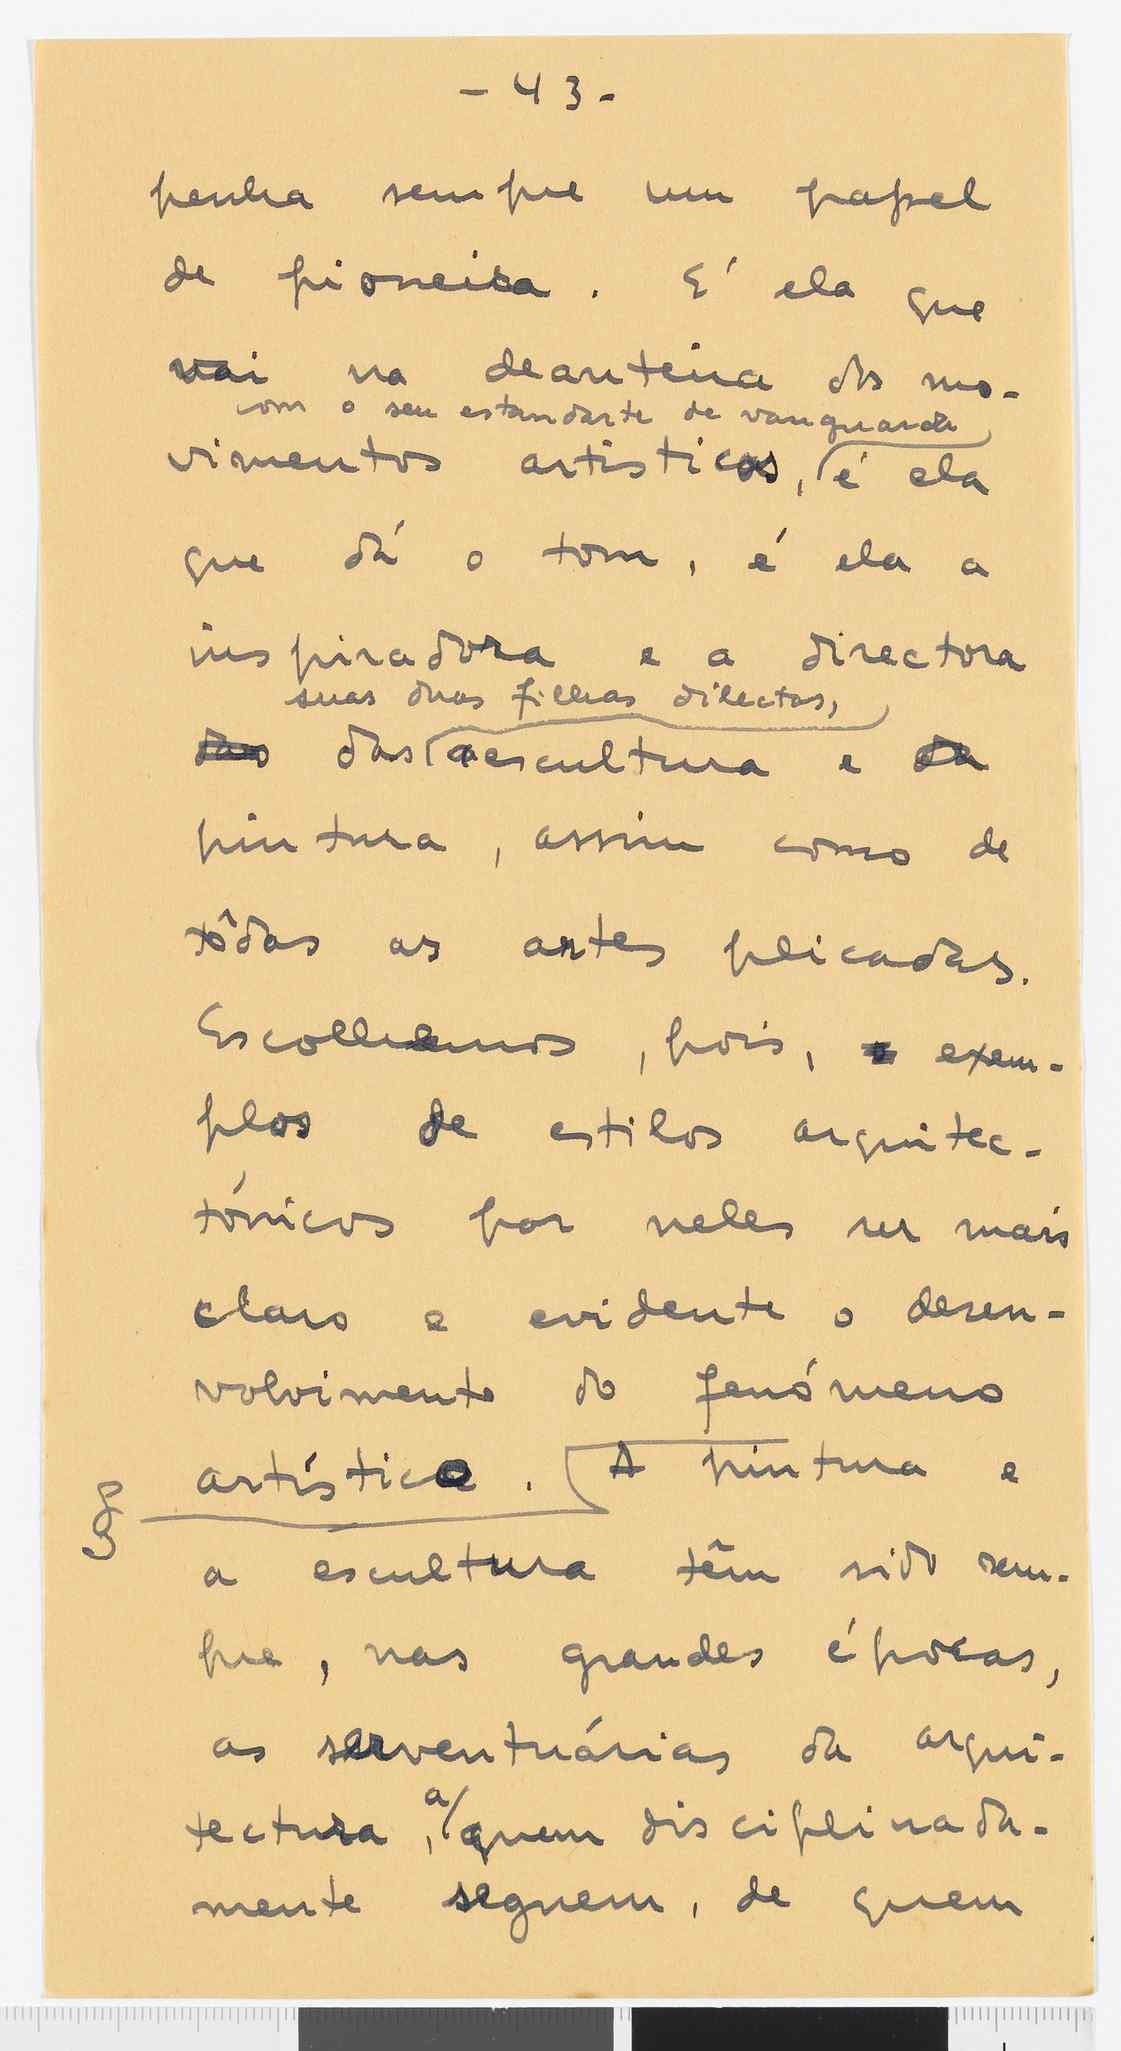 - 43 -
penha sempre um papel
de pioneira. E' ela que
vai na deanteira dos mo-
com o seu estandarte de vanguarda
vimentos artisticos, é ela
que dá o tom, é ela a
inspiradora e a directora
suas duas filhas dilectas,
das das a escultura e da
pintura, assim como de
tôdas as artes plicadas.
Escolhemos, pois, exem-
plos de estilos arquitec-
tónicos por neles ser mais
claro e evidente o desen-
volvimento do fenómeno
artístico. A pintura e
a escultura têm sido sem-
pre, nas grandes épocas,
as serventuárias da arqui-
a
tectura, quem disciplinada-
mente seguem, de quem